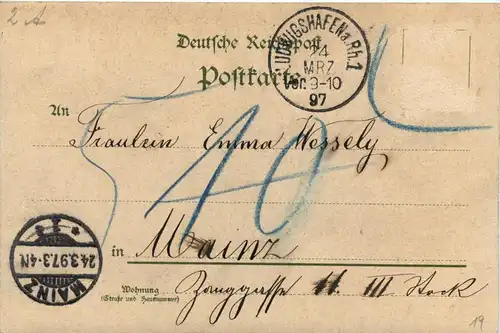 2 A
Deutsche Reichspost
Postkarte
LUDWIGSHAFEN a. Rh. 1
24
MRZ
Vor. 9-10
97
An
Fräulein Emma Wessely
10
in Mainz
MAINZ
24.3.97.3-4N.
Wohnung
(Straße und Hausnummer)
Zanggasse 11. III Stock
19